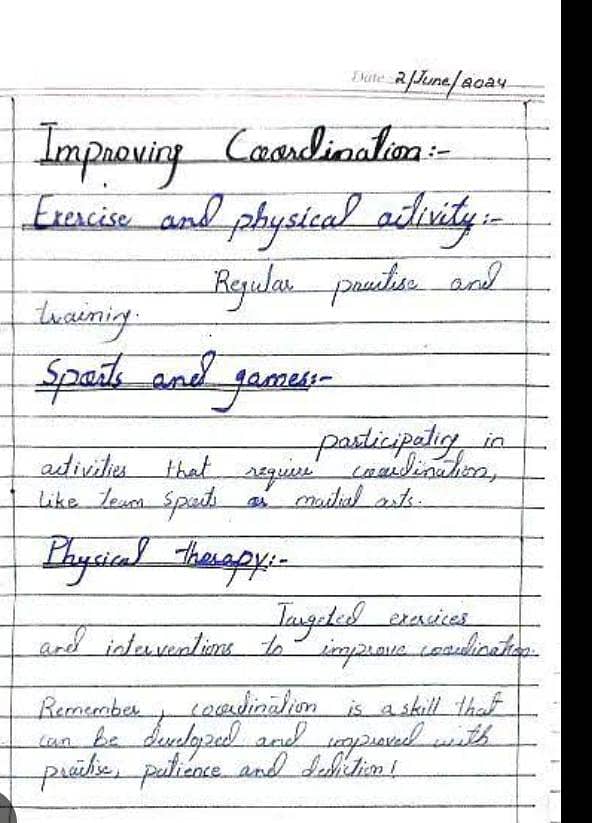 Date: 2/June/2024
Improving Coordination:-
Exercise and physical activity:-
Regular practise and
training.
Sports and games:-
participating in
activities that require coordination,
like team sports or martial arts.
Physical therapy:-
Targeted exercices
and interventions to improve coordination.
Remember, coordination is a skill that
can be developed and improved with
practise, patience and dediction!